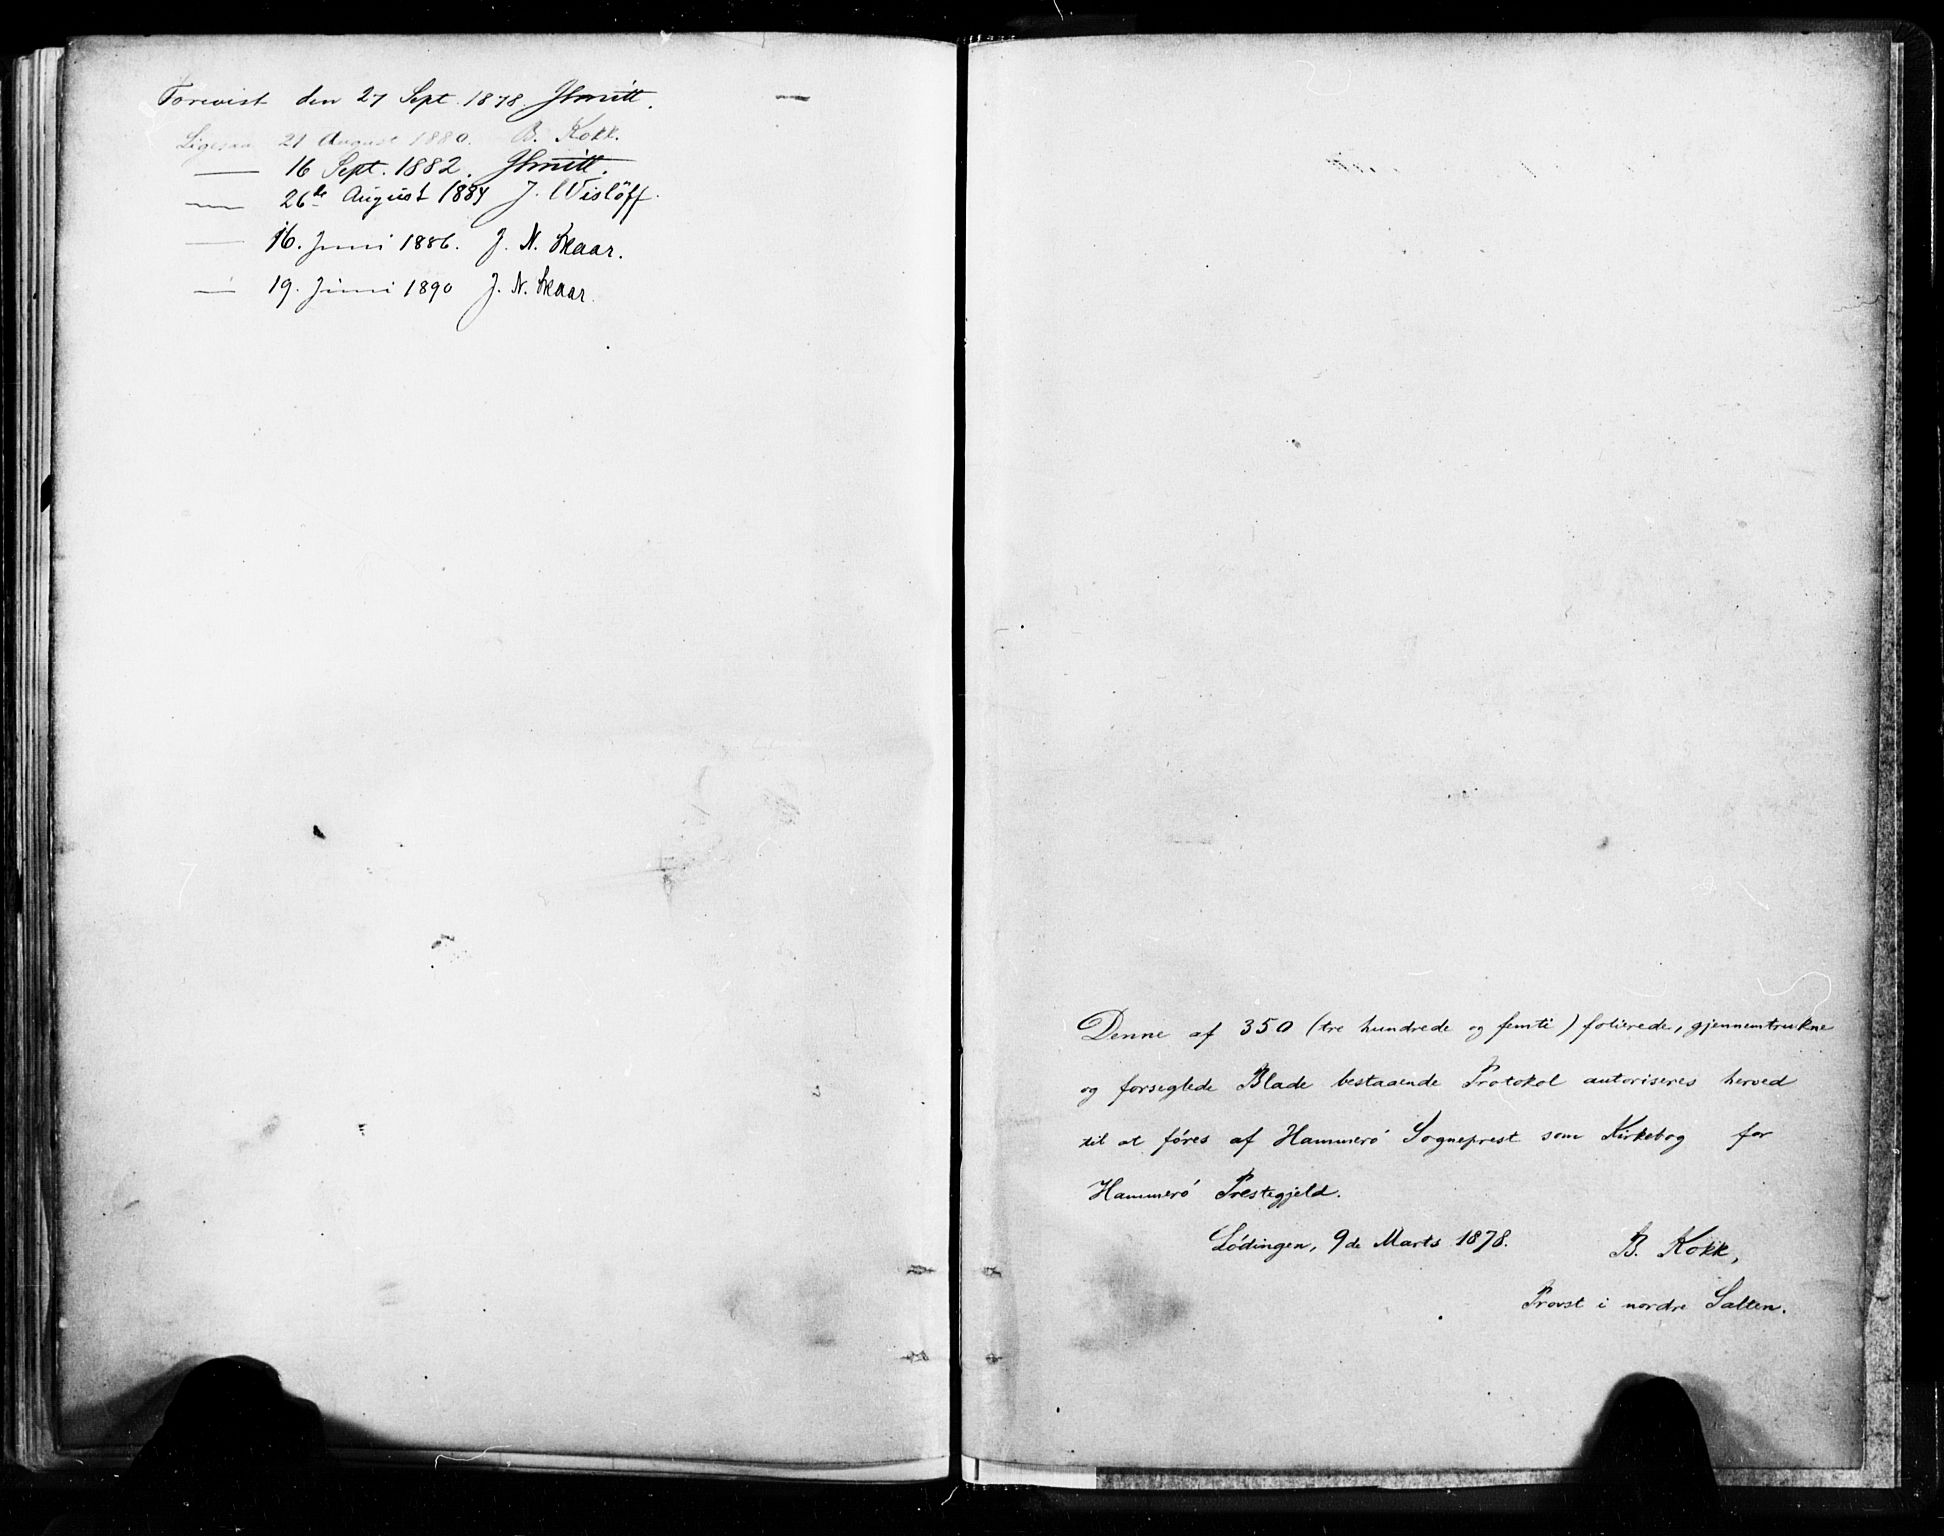 Forevist den 27 Sept. 1878. JSmitt.
Ligesaa 21 August 1880. B. Kokk.
— 16 Sept. 1882. JSmitt.
— 26de August 1884 J. Wislöff.
— 16. Juni 1886. J. N. Skaar.
— 19. Juni 1890 J. N. Skaar.
Denne af 350 (tre hundrede og femti) folierede, gjennemtrukne
og forseglede Blade bestaaende Protokol autoriseres herved
til at føres af Hammerø Sogneprest som Kirkebog for
Hammerø Prestegjeld.
Lødingen, 9de Marts 1878. B. Kokk,
Provst i nordre Salten.